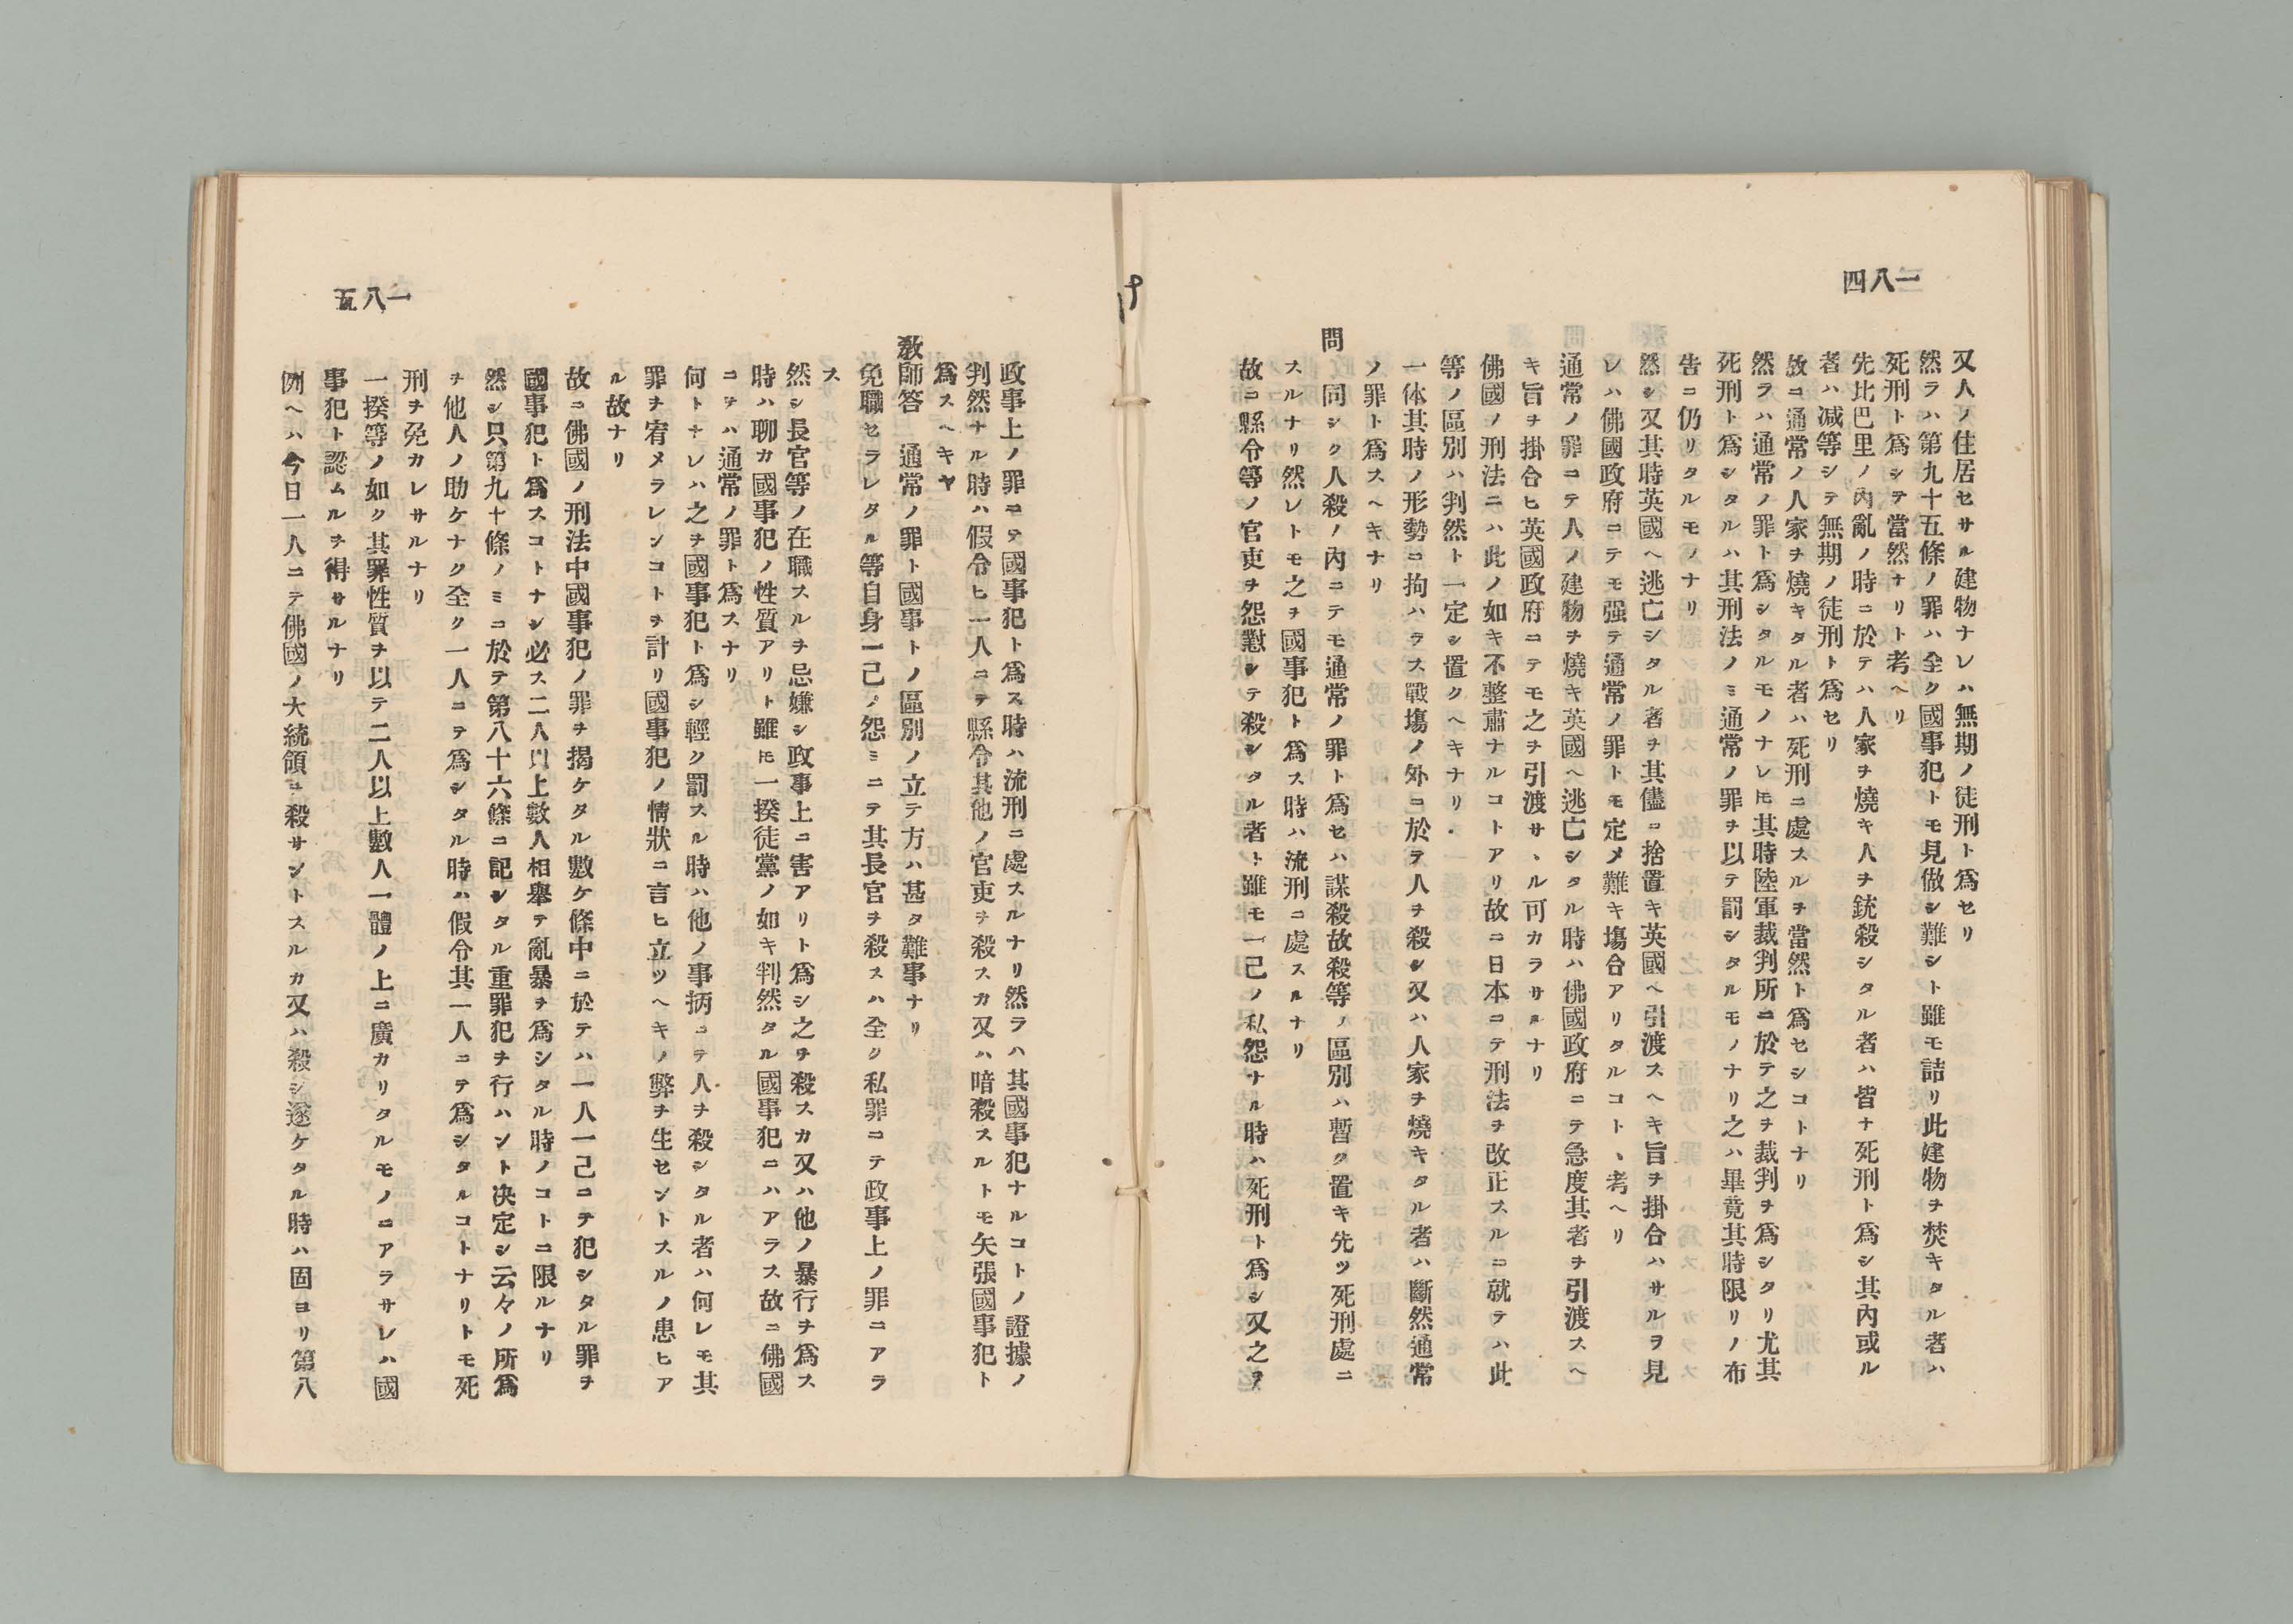 一八四
又人ノ住居セサル建物ナレハ無期ノ徒刑ト爲セリ
然ラハ第九十五條ノ罪ハ全ク國事犯トモ見做シ難シト雖モ詰リ此建物ヲ焚キタル者ハ
死刑ト爲シテ當然ナリト考ヘリ
先比巴里ノ內亂ノ時ニ於テハ人家ヲ燒キ人ヲ銃殺シタル者ハ皆ナ死刑ト爲シ其內或ル
者ハ減等シテ無期ノ徒刑ト爲セリ
故ニ通常ノ人家ヲ燒キタル者ハ死刑ニ處スルヲ當然ト爲セシコトナリ
然ラハ通常ノ罪ト爲シタルモノナレ𪜈其時陸軍裁判所ニ於テ之ヲ裁判ヲ爲シタリ尤其
死刑ト爲シタルハ其刑法ノミ通常ノ罪ヲ以テ罰シタルモノナリ之ハ畢竟其時限リノ布
告ニ仍リタルモノナリ
然シ又其時英國ヘ逃亡シタル者ヲ其儘ニ捨置キ英國ヘ引渡スヘキ旨ヲ掛合ハサルヲ見
レハ佛國政府ニテモ强テ通常ノ罪トモ定メ難キ塲合アリタルコトヽ考ヘリ
通常ノ罪ニテ人ノ建物ヲ燒キ英國ヘ逃亡シタル時ハ佛國政府ニテ急度其者ヲ引渡スヘ
キ旨ヲ掛合ヒ英國政府ニテモ之ヲ引渡サヽル可カラサルナリ
佛國ノ刑法ニハ此ノ如キ不整肅ナルコトアリ故ニ日本ニテ刑法ヲ改正スルニ就テハ此
等ノ區別ハ判然ト一定シ置クヘキナリ
一体其時ノ形勢ニ拘ハラス戰塲ノ外ニ於テ人ヲ殺シ又ハ人家ヲ燒キタル者ハ斷然通常
ノ罪ト爲スヘキナリ
問　同シク人殺ノ內ニテモ通常ノ罪ト爲セハ謀殺故殺等ノ區別ハ暫ク置キ先ツ死刑處ニ
スルナリ然レトモ之ヲ國事犯ト爲ス時ハ流刑ニ處スルナリ
故ニ縣令等ノ官吏ヲ怨懟シテ殺シタル者ト雖モ一己ノ私怨ナル時ハ死刑ト爲シ又之ヲ
一八五
政事上ノ罪ニテ國事犯ト爲ス時ハ流刑ニ處スルナリ然ラハ其國事犯ナルコトノ證據ノ
判然ナル時ハ假令ヒ一人ニテ縣令其他ノ官吏ヲ殺スカ又ハ暗殺スルトモ矢張國事犯ト
爲スヘキヤ
敎師答　通常ノ罪ト國事トノ區別ノ立テ方ハ甚タ難事ナリ
免職セラレタル等自身一己ノ怨ミニテ其長官ヲ殺スハ全ク私罪ニテ政事上ノ罪ニアラ
ス
然シ長官等ノ在職スルヲ忌嫌シ政事上ニ害アリト爲シ之ヲ殺スカ又ハ他ノ暴行ヲ爲ス
時ハ聊カ國事犯ノ性質アリト雖𪜈一揆徒黨ノ如キ判然タル國事犯ニハアラス故ニ佛國
ニテハ通常ノ罪ト爲スナリ
何トナレハ之ヲ國事犯ト爲シ輕ク罰スル時ハ他ノ事柄ニテ人ヲ殺シタル者ハ何レモ其
罪ヲ宥メラレンコトヲ計リ國事犯ノ情狀ニ言ヒ立ツヘキノ弊ヲ生セントスルノ患ヒア
ル故ナリ
故ニ佛國ノ刑法中國事犯ノ罪ヲ揭ケタル數ケ條中ニ於テハ一人一己ニテ犯シタル罪ヲ
國事犯ト爲スコトナシ必ス二人以上數人相擧テ亂暴ヲ爲シタル時ノコトニ限ルナリ
然シ只第九十條ノミニ於テ第八十六條ニ記シタル重罪犯ヲ行ハント决定シ云々ノ所爲
ヲ他人ノ助ケナク全ク一人ニテ爲シタル時ハ假令其一人ニテ爲シタルコトナリトモ死
刑ヲ免カレサルナリ
一揆等ノ如ク其罪性質ヲ以テ二人以上數人一體ノ上ニ廣カリタルモノニアラサレハ國
事犯ト認ムルヲ得サルナリ
例ヘハ今日一人ニテ佛國ノ大統領ヲ殺サントスルカ又ハ殺シ遂ケタル時ハ固ヨリ第八